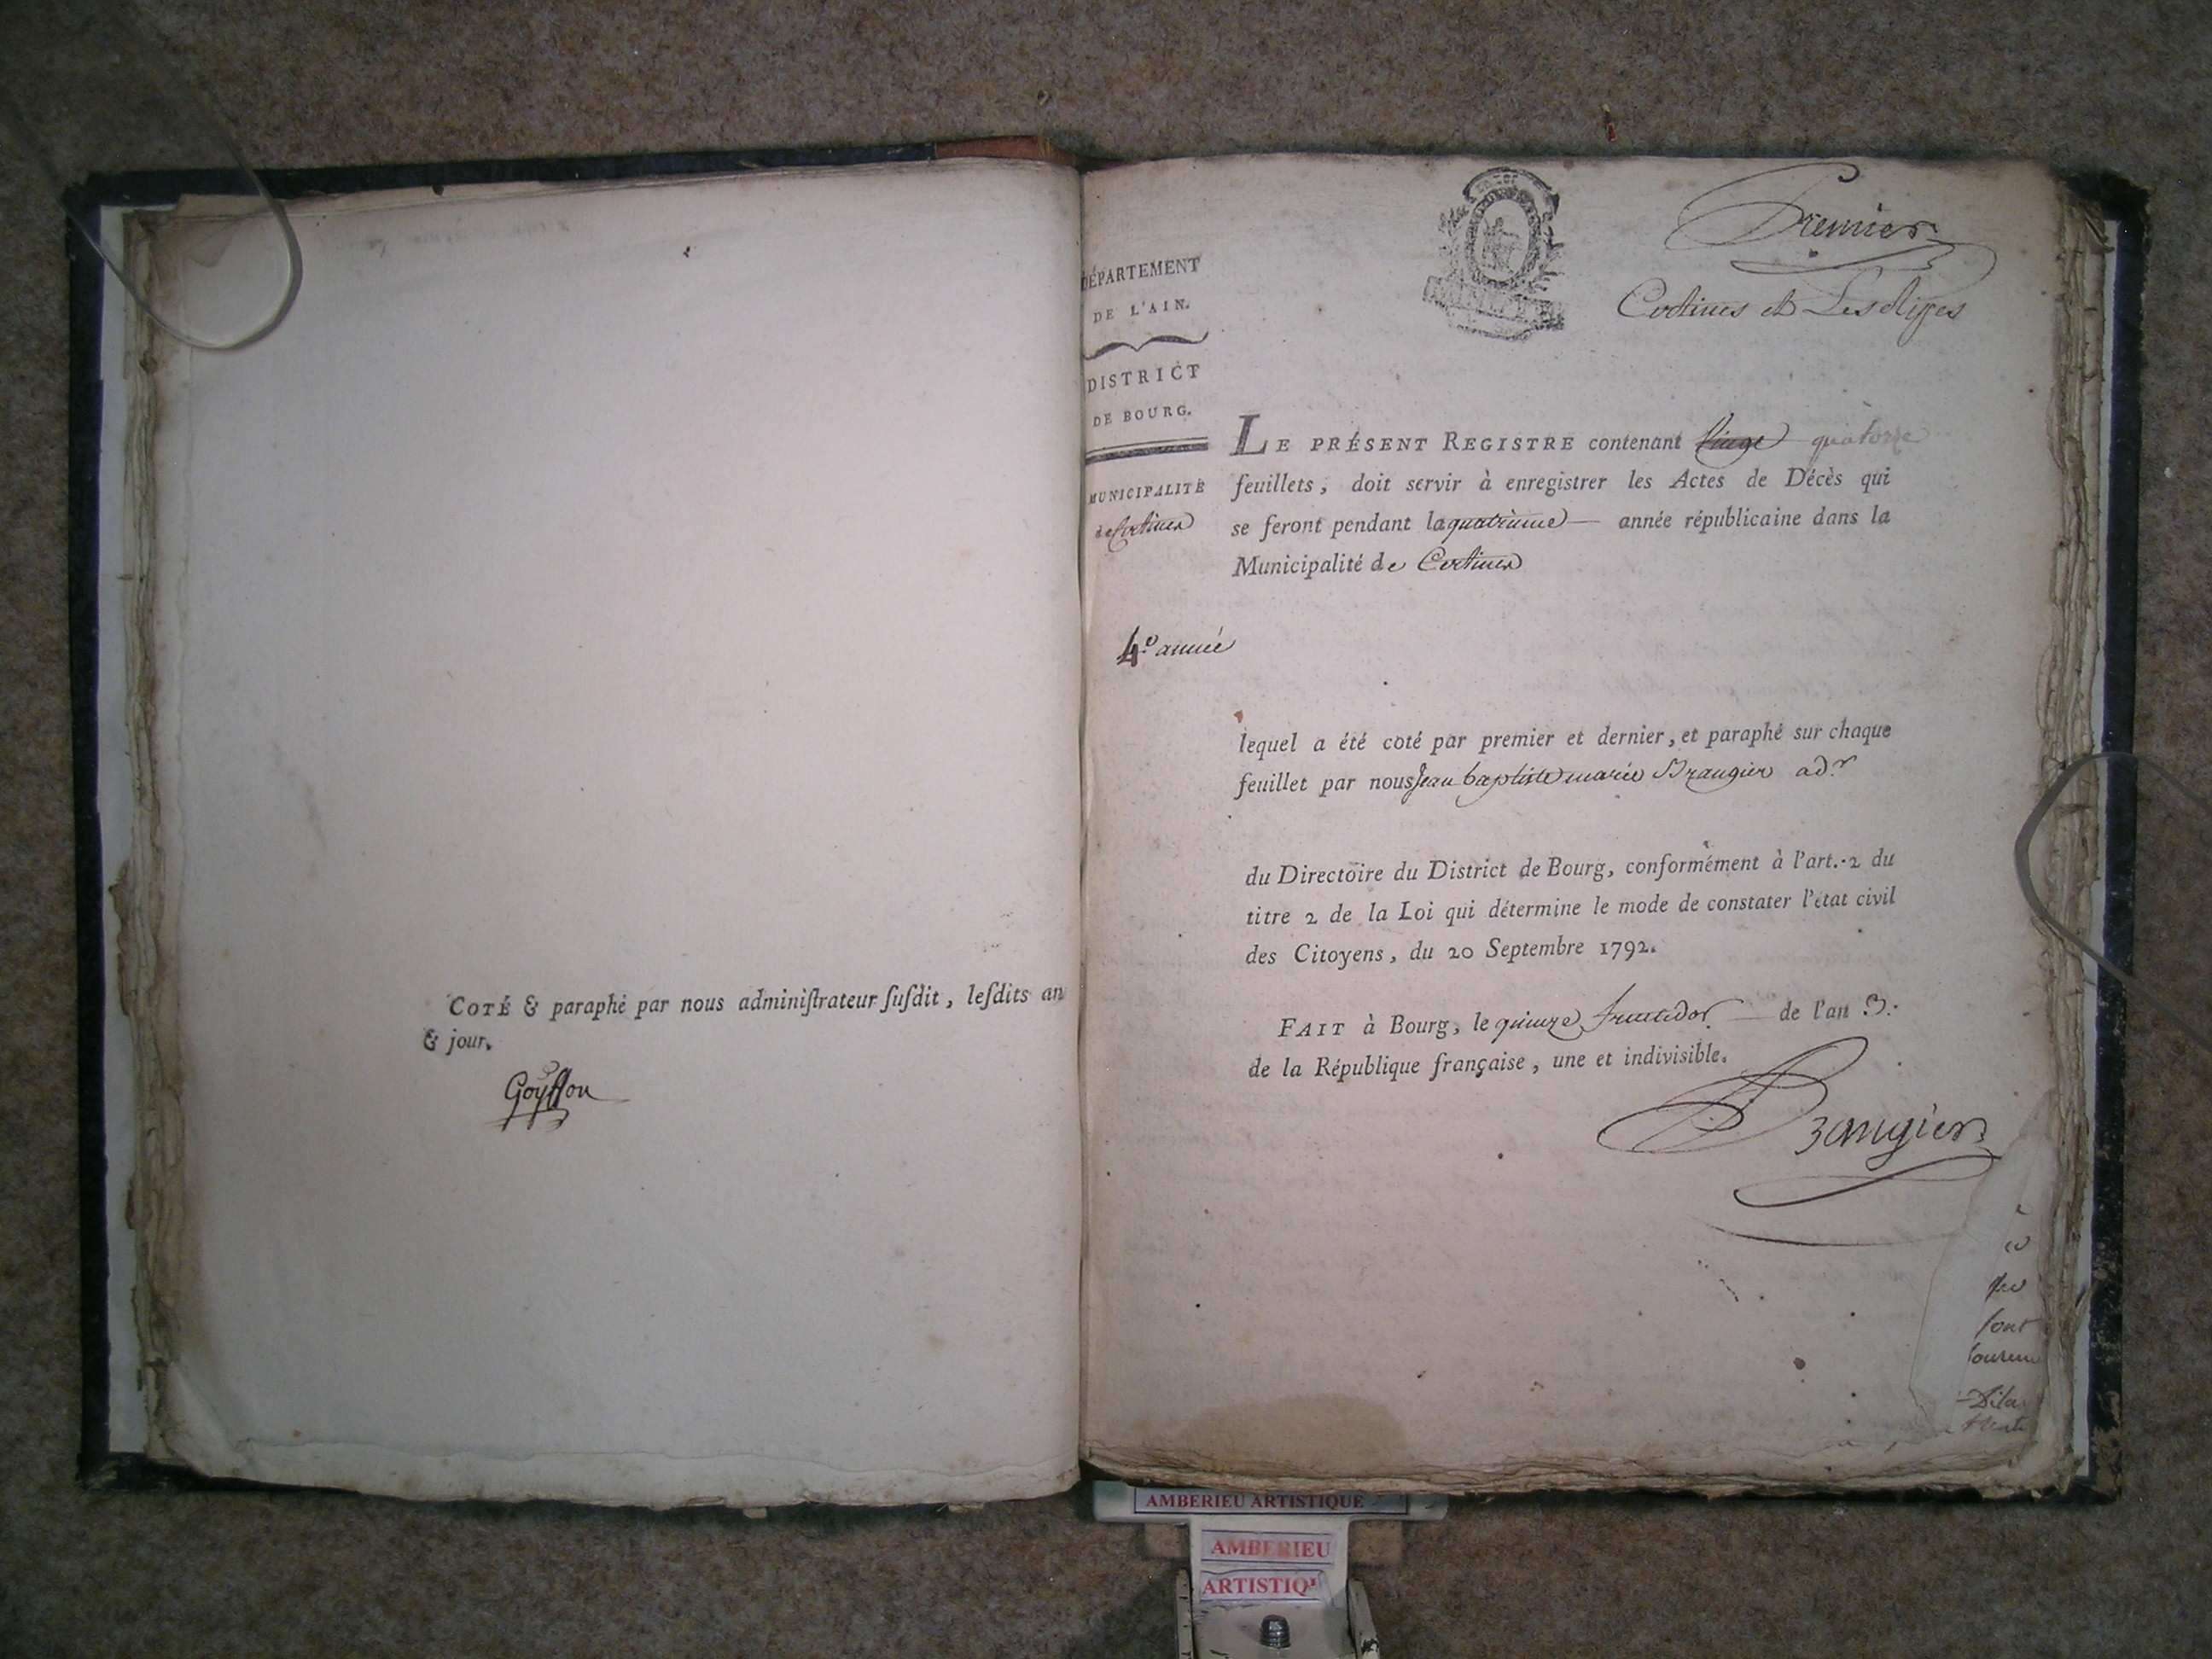 COTÉ & paraphé par nous adminiſtrateur ſuſdit, leſdits an
& jour.
Goyffon
DÉPARTEMENT
DE L'AIN.
DISTRICT
DE BOURG.
MUNICIPALITÉ
de Certines
4.e année
Premier
Certines et
LE PRÉSENT REGISTRE contenant quatorze
feuillets, doit servir à enregistrer les Actes de Décès qui
se feront pendant la quatrieme année républicaine dans la
Municipalité de Certines
lequel a été coté par premier et dernier, et paraphé sur chaque
feuillet par nous Jean baptiste marie Brangier adr
du Directoire du District de Bourg, conformément à l'art. 2 du
titre 2 de la Loi qui détermine le mode de constater l'état civil
des Citoyens, du 20 Septembre 1792.
FAIT à Bourg, le quinze fructidor de l'an 3.
de la République française, une et indivisible.
Brangier
sont
AMBERIEU ARTISTIQUE
AMBERIEU
ARTISTIQU